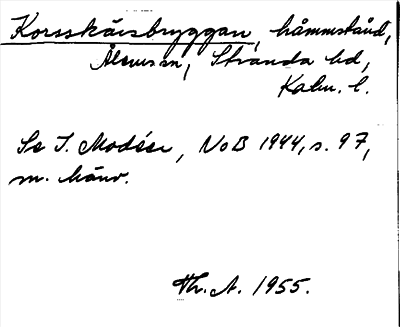 Korsskärsbryggan, håmmståd,
Ålemsn, Stranda hd,
Kalm. l.
Se I. Modéer, NoB 1944, s. 97,
m. hänv.
Th. A. 1955.